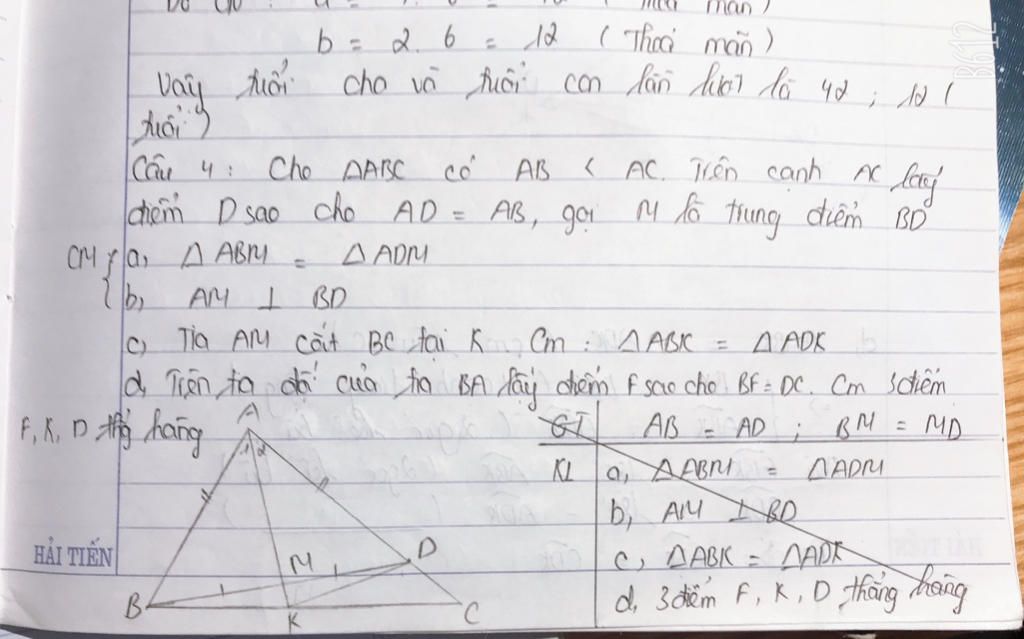 b = 2. 6 = 12 ( Thoả mãn )
Vậy tuổi cha và tuổi con lần lượt là 42 ; 12 (
tuổi )
Câu 4 : Cho ΔABC có AB < AC. Trên cạnh AC lấy
điểm D sao cho AD = AB, gọi M là trung điểm BD
CM { a, Δ ABM = Δ ADM
b, AM ⊥ BD
c, Tia AM cắt BC tại K Cm : Δ ABK = Δ ADK
d, Trên tia đối của tia BA lấy điểm F sao cho BF = DC. Cm 3 điểm
F, K, D thg hàng
A
1 2
M
D
B
K
C
GT AB = AD ; BM = MD
KL a, Δ ABM = Δ ADM
b, AM ⊥ BD
c, Δ ABK = Δ ADK
d, 3 điểm F, K, D thẳng hàng
HẢI TIẾN
B612